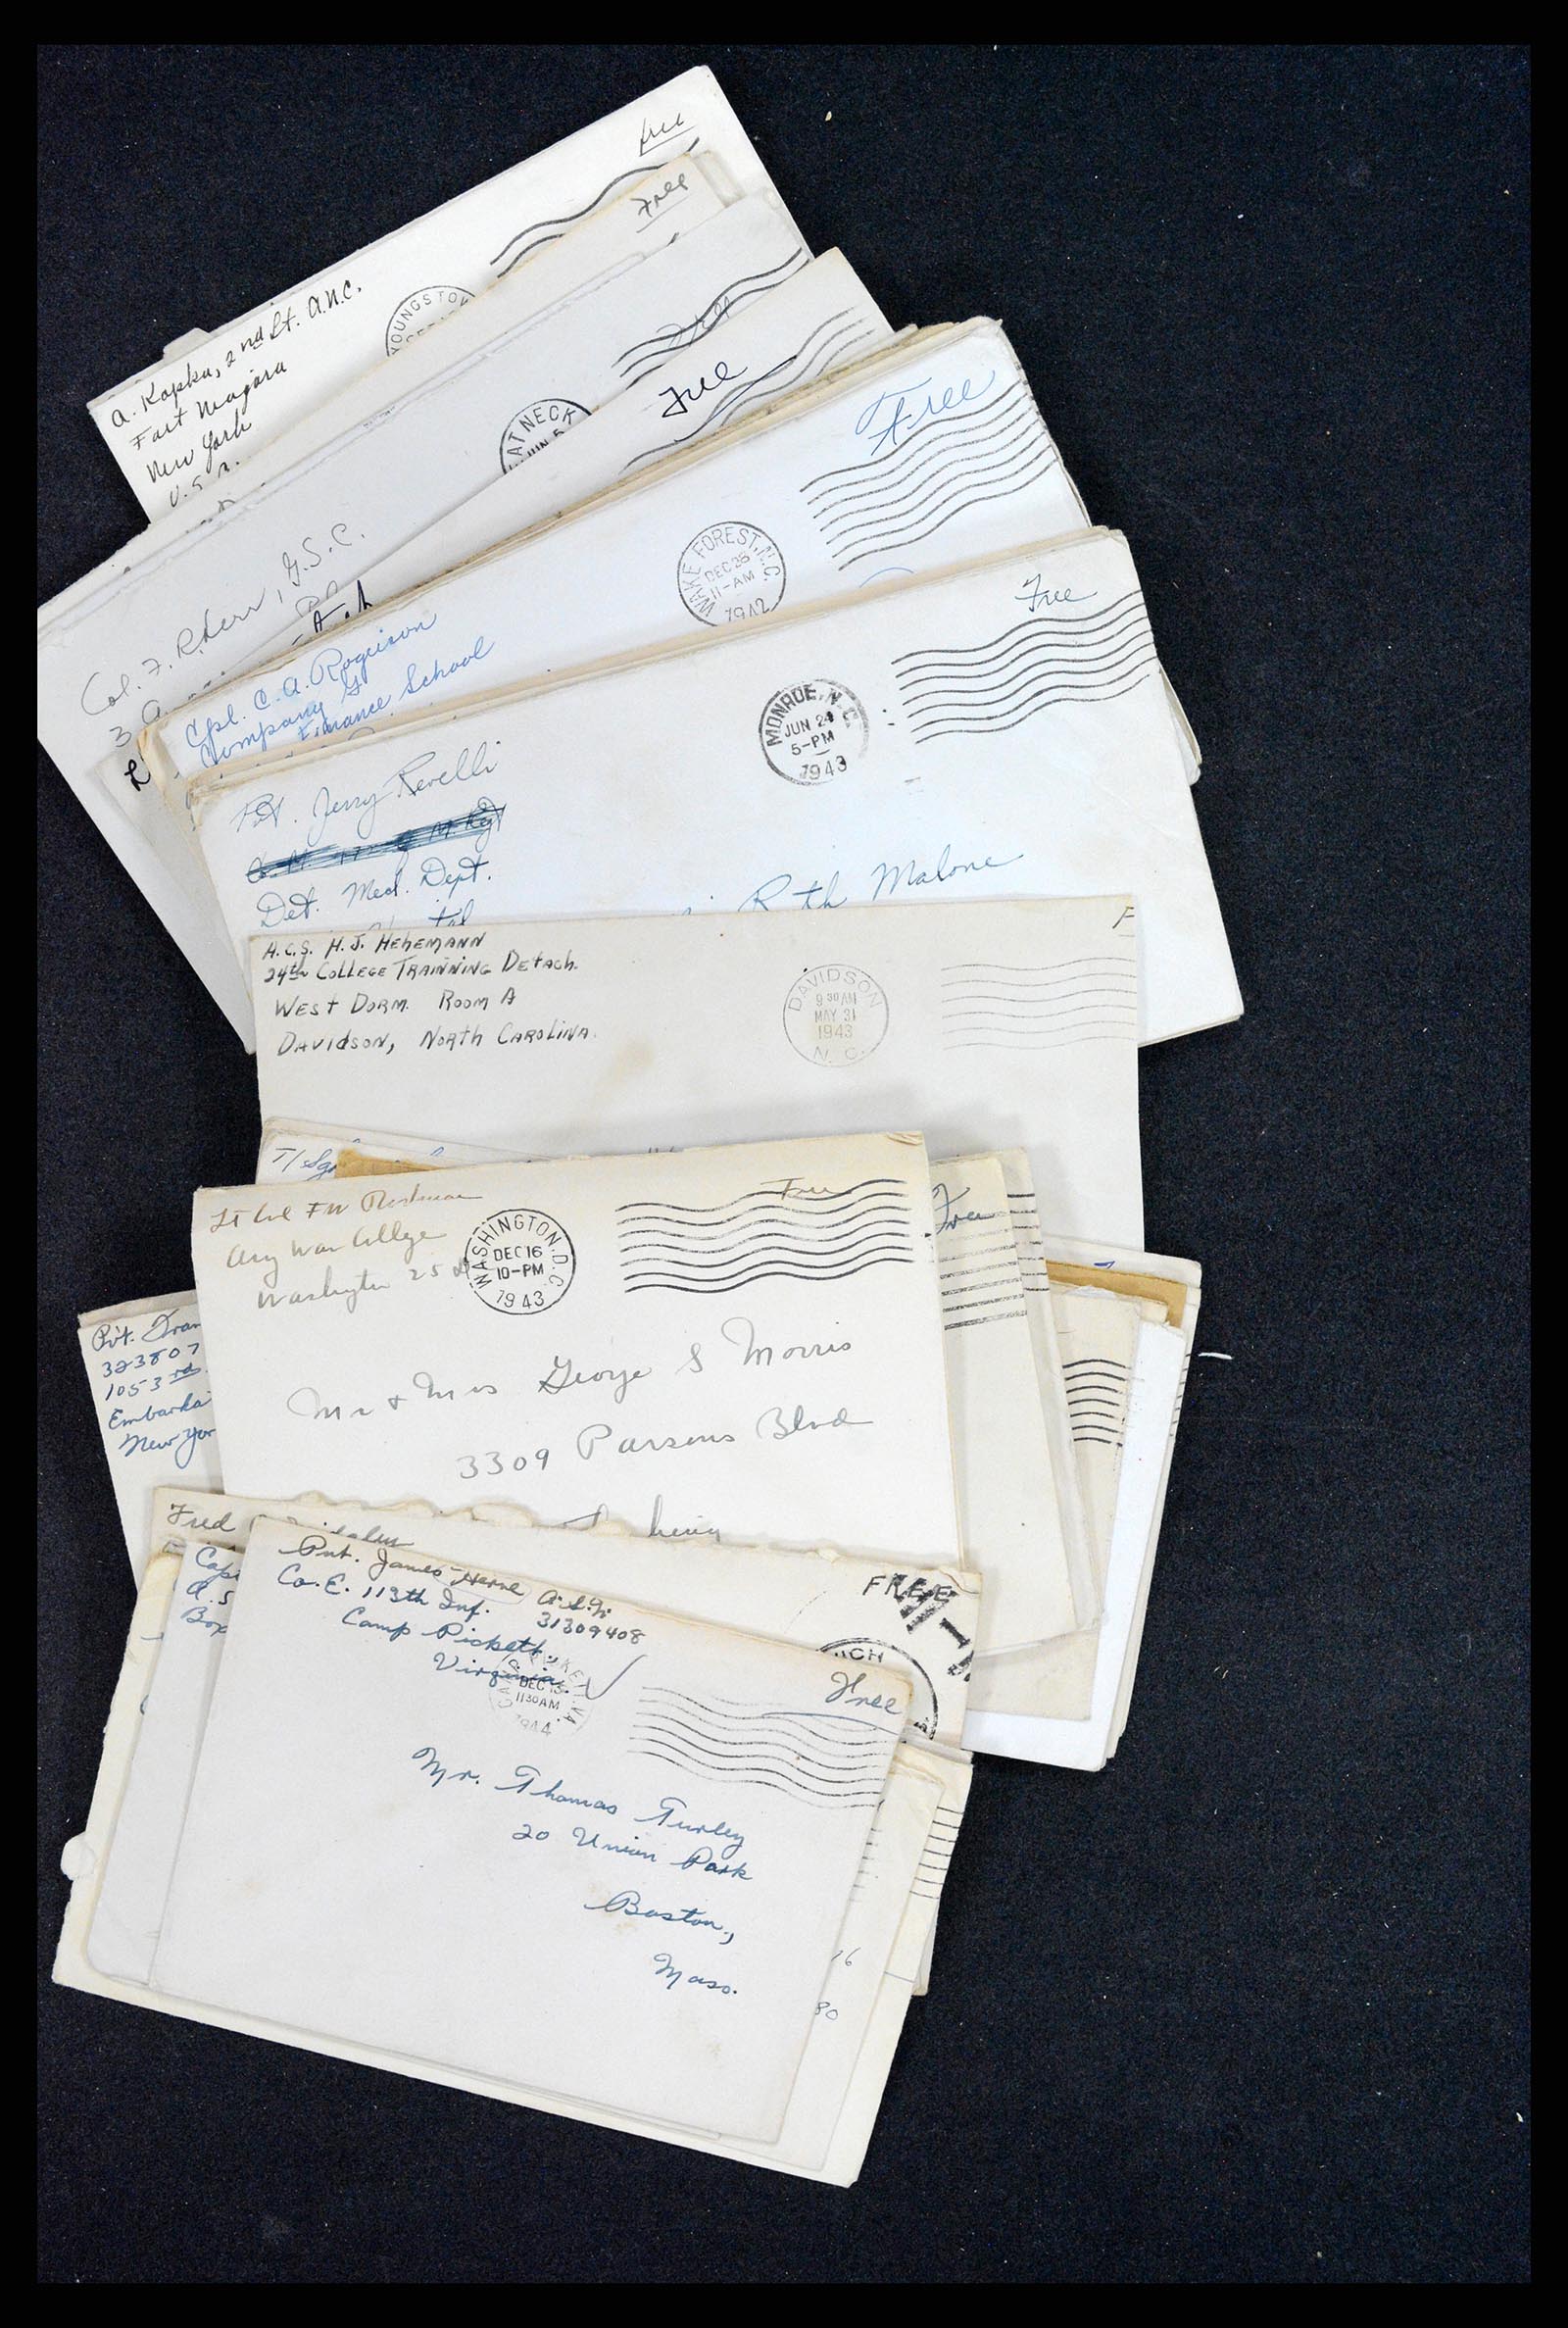 free
A. Kapka, 2nd Lt. A.N.C.
Fort Niagara
New York
U.S.A.
YOUNGSTO
Free
AT NECK
JUN 5
Free
Col. F. G.S.C.
Free
WAKE FOREST, N.C.
DEC 28
11-AM
1942
Cpl. C. A. Rogison
Company G
Finance School
Free
MONROE, N.C.
JUN 24
5-PM
1943
Pvt. Jerry Revelli
Det. Med. Dept.
tal
Ruth Malone
A.C.S. H.J. HEHEMANN
24th COLLEGE TRAINNING DETACH.
WEST DORM. ROOM A
DAVIDSON, NORTH CAROLINA.
F
DAVIDSON
9 30 AM
MAY 31
1943
N. C.
T/Sgt
Lt Col FW
Army War College
Washington 25 DC
WASHINGTON, D.C.
DEC 16
10-PM
1943
Free
Free
Mr & Mrs George S Morris
3309 Parsons Blvd
Pvt. Fran
323807
1053rd
Embarka
New Yor
Fred
FREE
Capt
A.S
Box
UCH
Pvt. James Herne A.S.N.
Co. E. 113th Inf. 31309408
Camp Pickett,
Virginia.
DEC 13
11 30 AM
1944
VA.
Free
Mr. Thomas Turley
20 Union Park
Boston,
Mass.
16
80